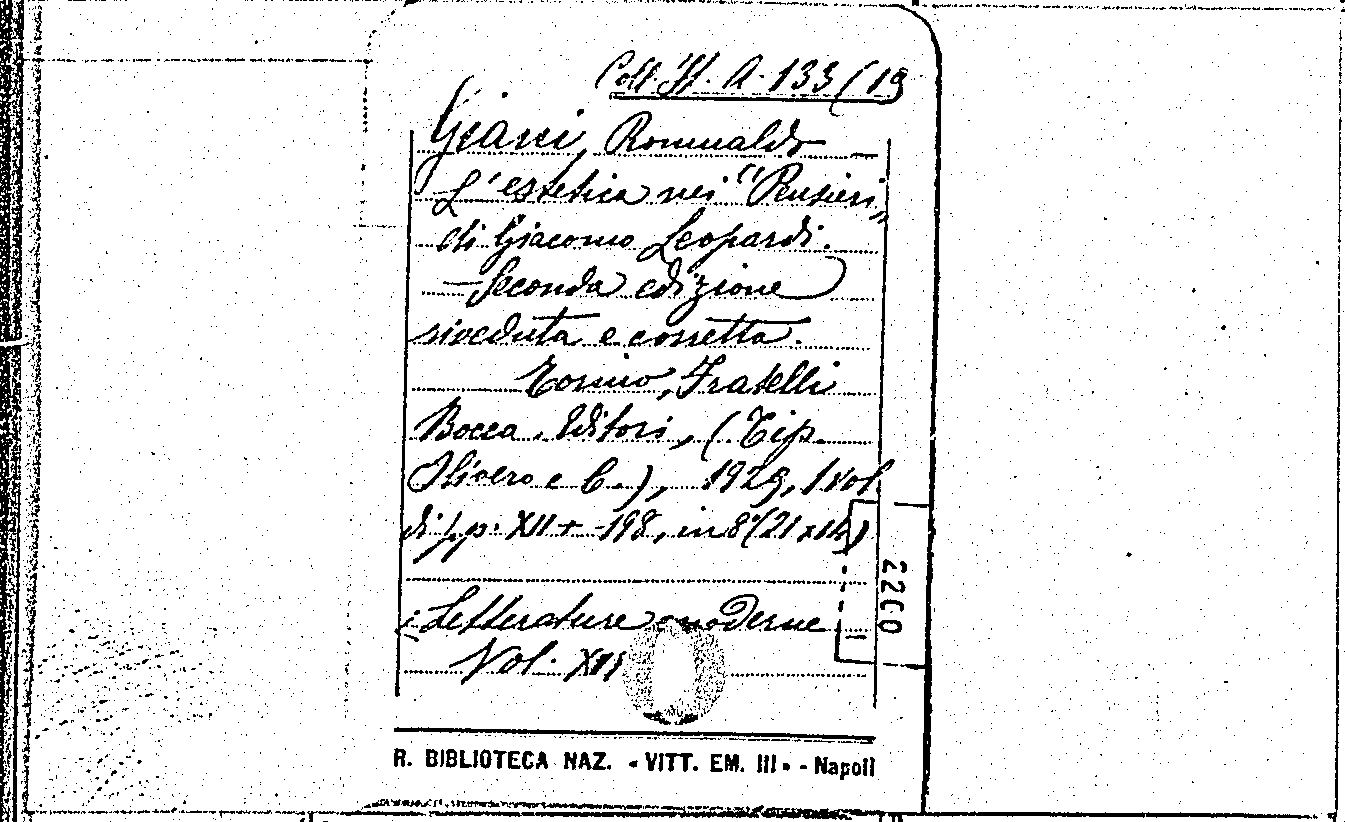 Coll. It. A. 133 (19
Giani, Romualdo —
L'estetica nei "Pensieri"
di Giacomo Leopardi.
— Seconda edizione
riveduta e corretta.
Torino, Fratelli
Bocca. Editori, (Tip.
Olivero e C.), 1929, 1 vol.
di pp. XII + 198, in 8° (21 x 14)
Letterature moderne
Vol. XII
2200
R. BIBLIOTECA NAZ. - VITT. EM. III - - Napoli